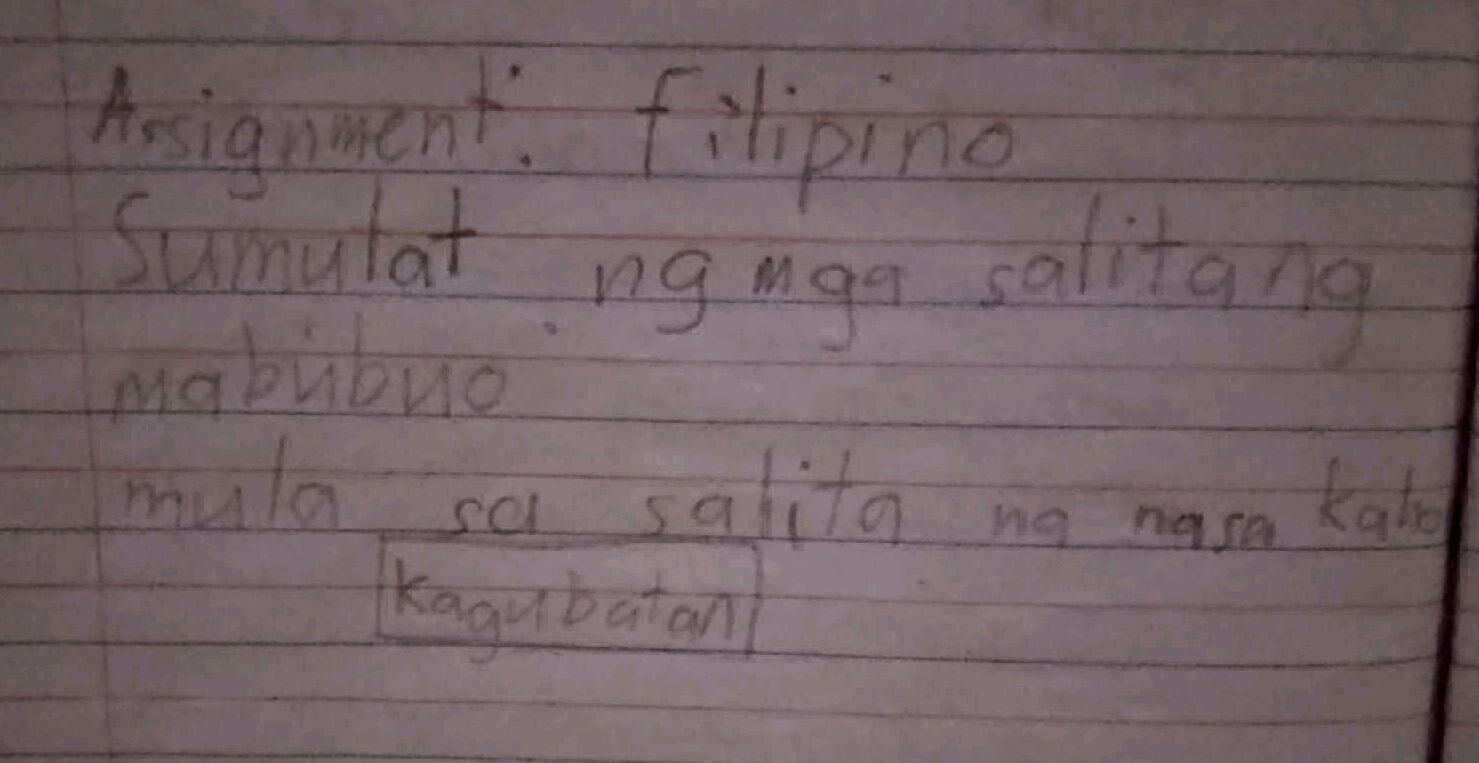 Assignment: filipino
Sumulat ng mga salitang
mabubuo
mula sa salita na nasa kaho
kagubatan